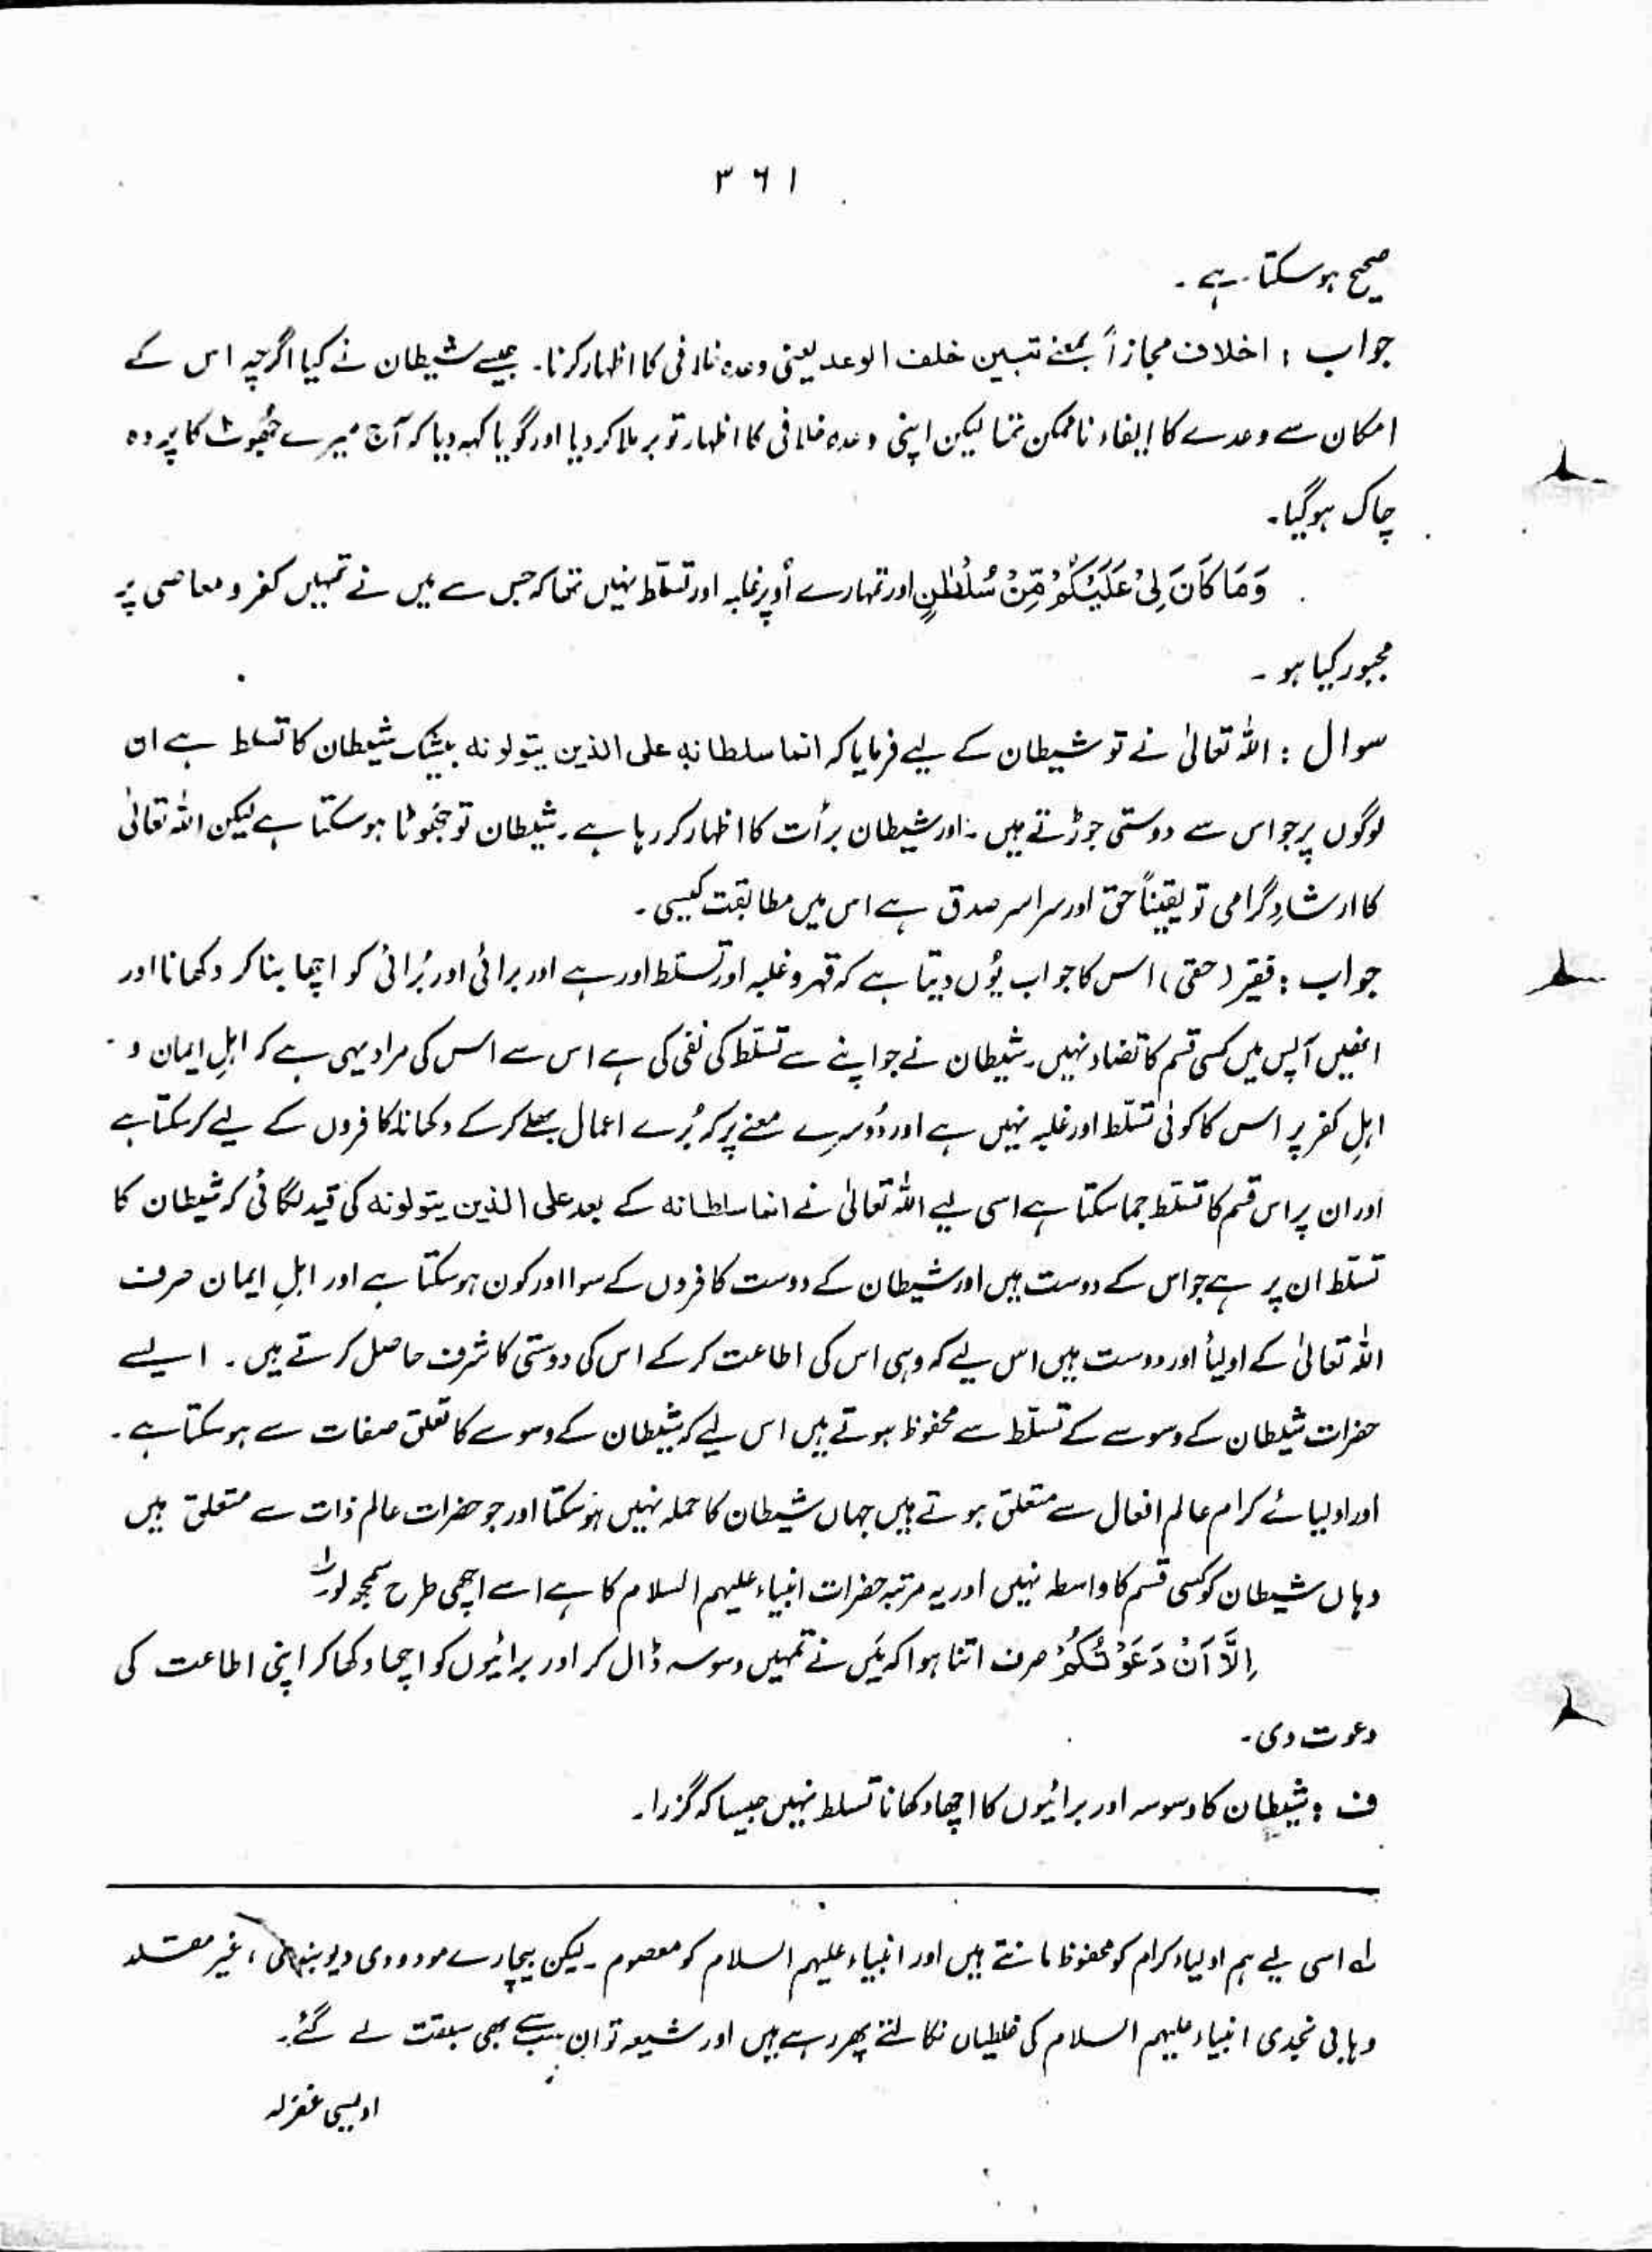 ۳۶۱
صحیح ہوسکتا ہے ۔
جواب : اخلاف مجازاً بمعنے تبیین خلف الوعد یعنی وعدہ خلافی کا اظہار کرنا۔ جیسے شیطان نے کیا اگرچہ اس کے
امکان سے وعدے کا ایفاء ناممکن تھا لیکن اپنی وعدہ خلافی کا اظہار تو برملا کر دیا اور گویا کہہ دیا کہ آج میرے جُھوٹ کا پردہ
چاک ہوگیا۔
وَمَا كَانَ لِیْ عَلَیْكُمْ مِّنْ سُلْطٰنٍ اور تمہارے اُوپر غلبہ اور تسلّط نہیں تھا کہ جس سے میں نے تمہیں کفر و معاصی پر
مجبور کیا ہو ۔
سوال : اللہ تعالیٰ نے تو شیطان کے لیے فرمایا کہ انما سلطانہ علی الذین یتولونہ بیشک شیطان کا تسلط ہے ان
لوگوں پر جو اس سے دوستی جوڑتے ہیں ۔ اور شیطان برأت کا اظہار کر رہا ہے ۔ شیطان تو جُھوٹا ہوسکتا ہے لیکن اللہ تعالیٰ
کا ارشادِ گرامی تو یقیناً حق اور سراسر صدق ہے اس میں مطابقت کیسی ۔
جواب : فقیر (حقی) اس کا جواب یُوں دیتا ہے کہ قہر و غلبہ اور تسلط اور ہے اور برائی اور بُرائی کو اچھا بنا کر دکھانا اور
انھیں آپس میں کسی قسم کا تضاد نہیں ۔ شیطان نے جو اپنے سے تسلّط کی نفی کی ہے اس سے اس کی مراد یہی ہے کہ اہلِ ایمان و
اہلِ کفر پر اس کا کوئی تسلّط اور غلبہ نہیں ہے اور دُوسرے معنے پر کہ بُرے اعمال بھلے کرکے دکھانا کافروں کے لیے کرسکتا ہے
اور ان پر اس قسم کا تسلّط جما سکتا ہے اسی لیے اللہ تعالیٰ نے انما سلطانہ کے بعد علی الذین یتولونہ کی قید لگائی کہ شیطان کا
تسلّط ان پر ہے جو اس کے دوست ہیں اور شیطان کے دوست کافروں کے سوا اور کون ہوسکتا ہے اور اہلِ ایمان صرف
اللہ تعالیٰ کے اولیأ اور دوست ہیں اس لیے کہ وہی اس کی اطاعت کرکے اس کی دوستی کا شرف حاصل کرتے ہیں ۔ ایسے
حضرات شیطان کے وسوسے کے تسلّط سے محفوظ ہوتے ہیں اس لیے کہ شیطان کے وسوسے کا تعلق صفات سے ہوسکتا ہے ۔
اور اولیائے کرام عالم افعال سے متعلق ہوتے ہیں جہاں شیطان کا حملہ نہیں ہوسکتا اور جو حضرات عالم ذات سے متعلق ہیں
وہاں شیطان کو کسی قسم کا واسطہ نہیں اور یہ مرتبہ حضرات انبیاء علیہم السلام کا ہے اسے اچھی طرح سمجھ لو۔
اِلَّا اَنْ دَعَوْتُكُمْ صرف اتنا ہوا کہ مَیں نے تمہیں وسوسہ ڈال کر اور برائیوں کو اچھا دکھا کر اپنی اطاعت کی
دعوت دی ۔
ف : شیطان کا وسوسہ اور برائیوں کا اچھا دکھانا تسلط نہیں جیسا کہ گزرا ۔
لہ اسی لیے ہم اولیاء کرام کو محفوظ مانتے ہیں اور انبیاء علیہم السلام کو معصوم ۔ لیکن بیچارے مودودی دیوبندی ، غیر مقلد
وہابی نجدی انبیاء علیہم السلام کی غلطیاں نکالتے پھر رہے ہیں اور شیعہ تو ان سب سے بھی سبقت لے گئے ۔
اویسی غفرلہ